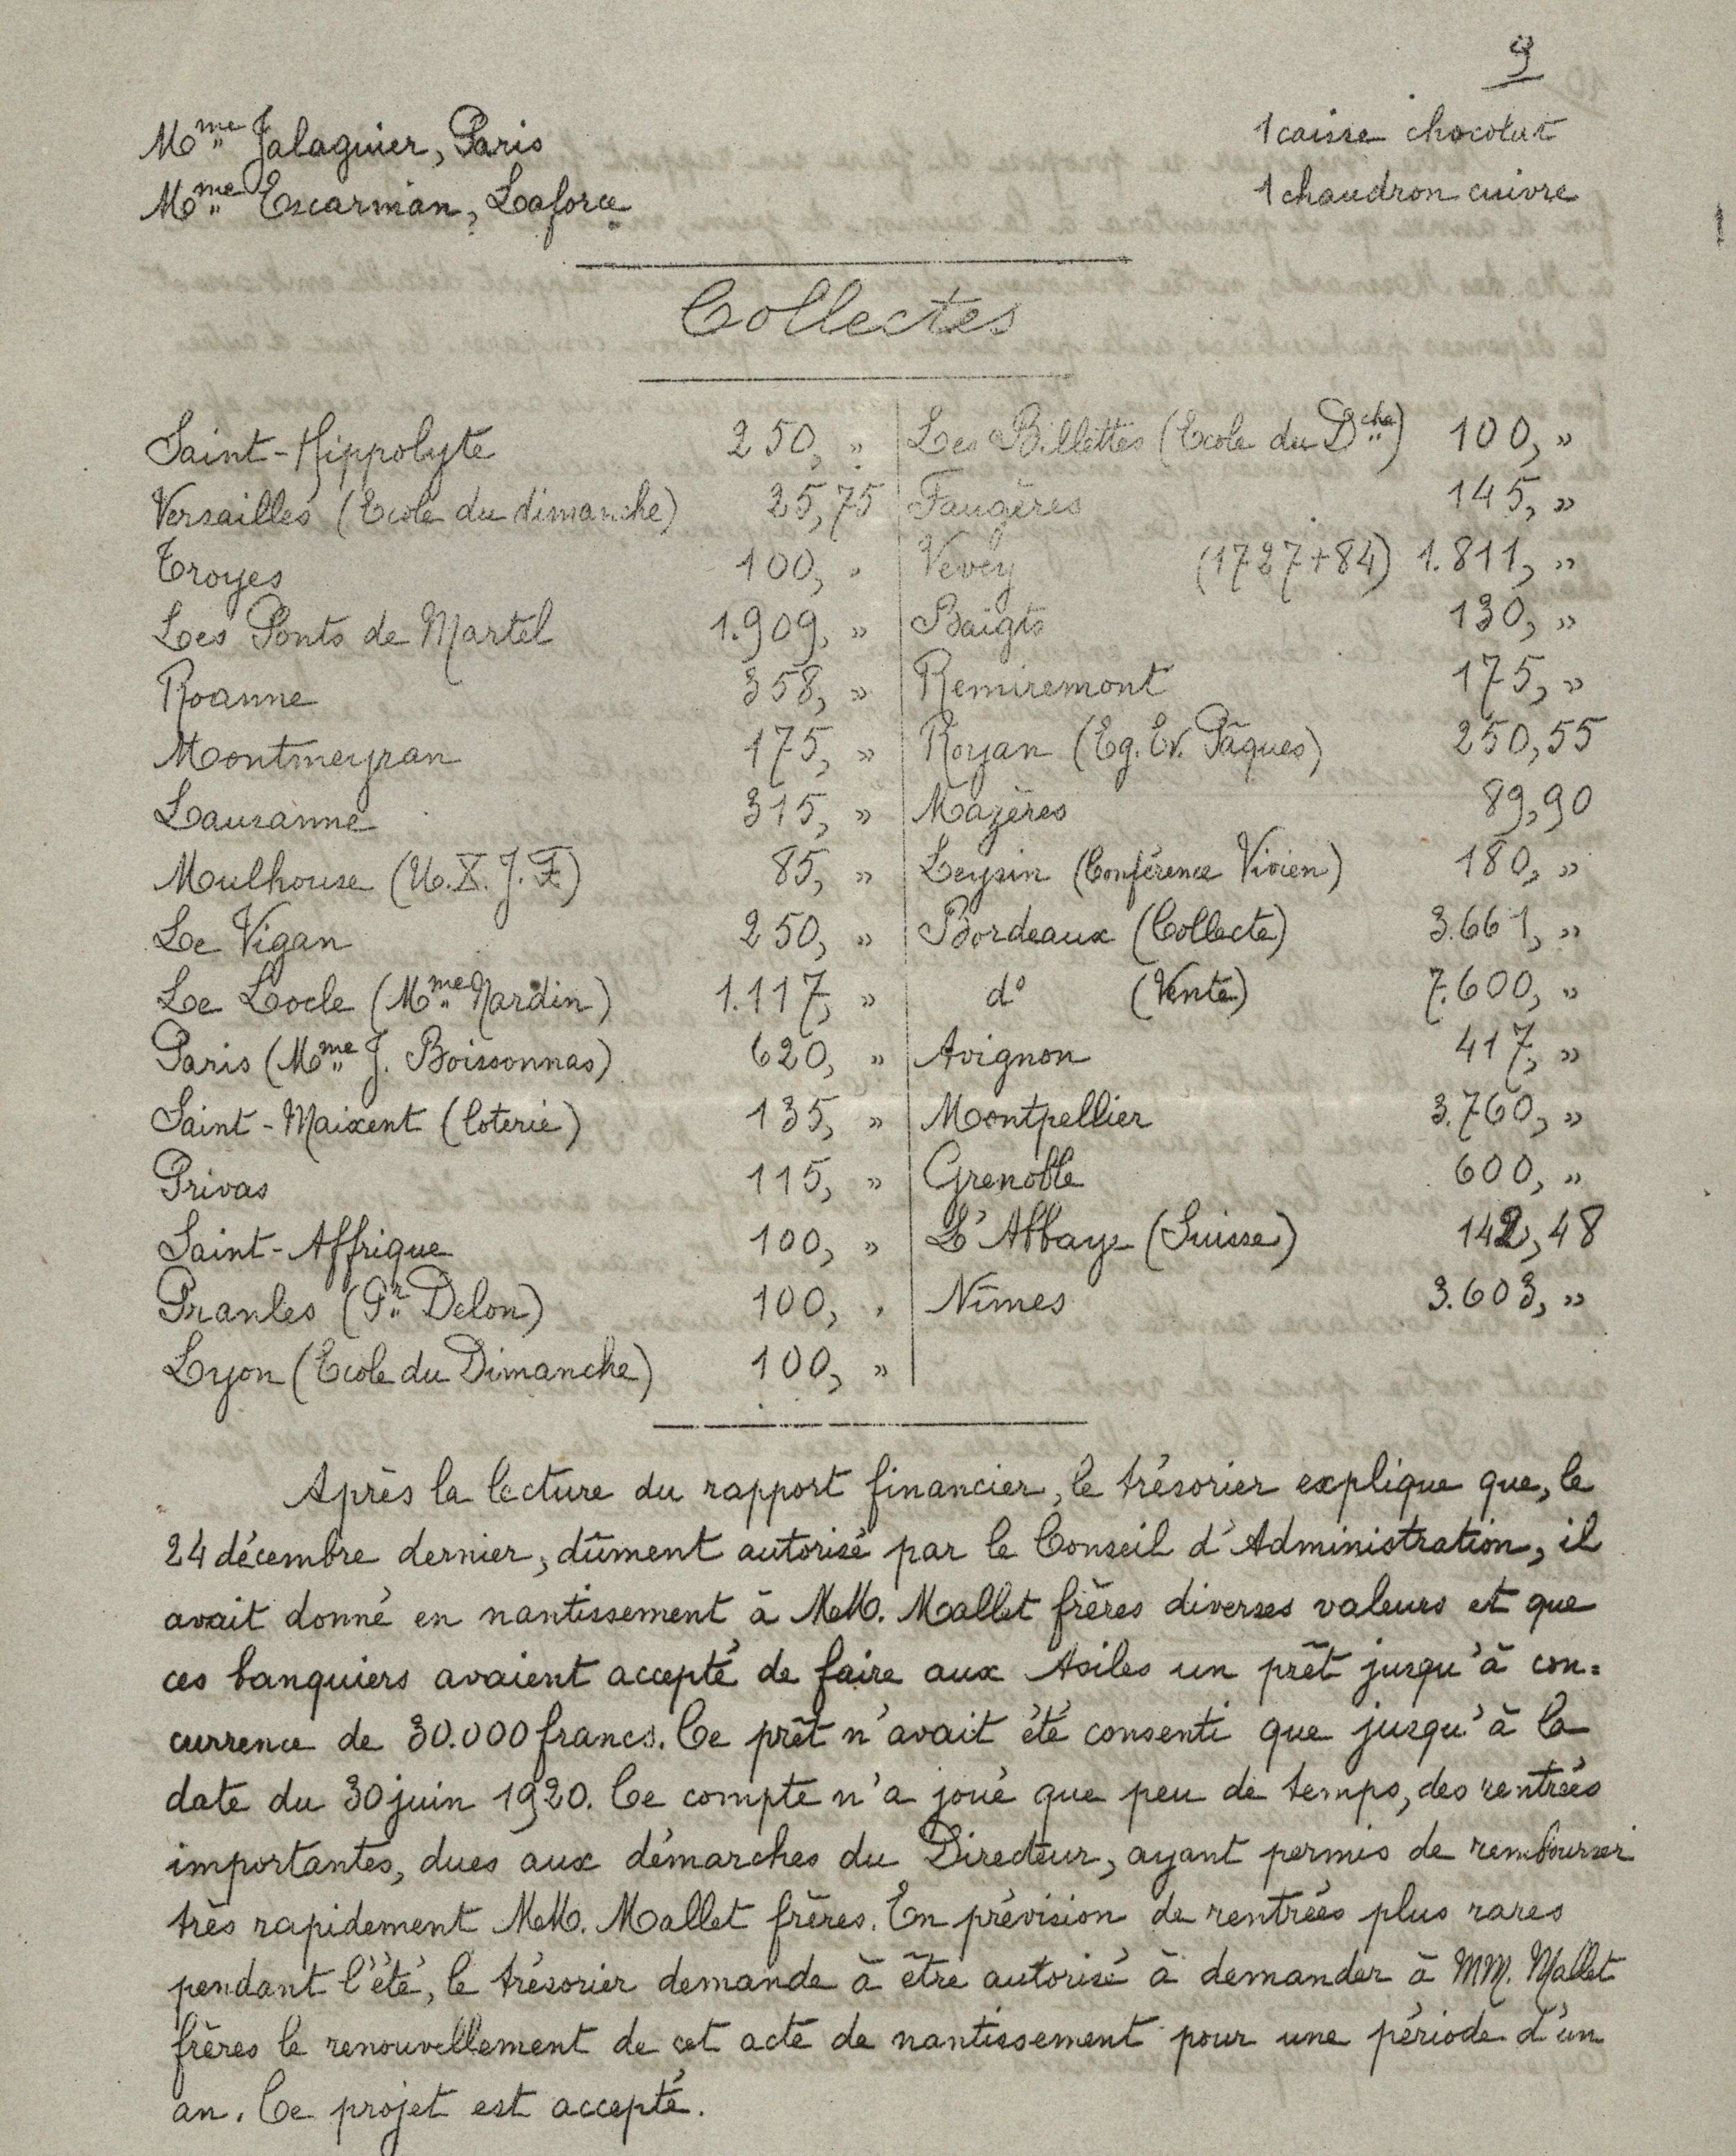 9
Mme Jalaguier, Paris 1 caisse chocolat
Mme Escarmian, Laforce 1 chaudron cuivre
Collectes
Saint-Hippolyte 250, "
Versailles (Ecole du dimanche) 25,75
Troyes 100, "
Les Ponts de Martel 1.909, "
Roanne 358, "
Montmeyran 175, "
Lausanne 315, "
Mulhouse (U.X.J.F.) 85, "
Le Vigan 250, "
Le Locle (Mme Nardin) 1.117, "
Paris (Mme J. Boissonnas) 620, "
Saint-Maixent (loterie) 135, "
Privas 115, "
Saint-Affrique 100, "
Pranles (Pr Delon) 100, "
Lyon (Ecole du Dimanche) 100, "
Les Billettes (Ecole du Dche) 100, "
Faugères 145, "
Vevey (1727+84) 1.811, "
Baigts 130, "
Remiremont 175, "
Royan (Eg. Ev. Pâques) 250,55
Mazères 89,90
Leysin (Conférence Vivien) 180, "
Bordeaux (Collecte) 3.661, "
d° (Vente) 7.600, "
Avignon 417, "
Montpellier 3.760, "
Grenoble 600, "
L'Abbaye (Suisse) 142,48
Nîmes 3.603, "
Après la lecture du rapport financier, le trésorier explique que, le
24 décembre dernier, dûment autorisé par le Conseil d'Administration, il
avait donné en nantissement à MM. Mallet frères diverses valeurs et que
ces banquiers avaient accepté de faire aux Asiles un prêt jusqu'à con=
currence de 30.000 francs. Ce prêt n'avait été consenti que jusqu'à la
date du 30 juin 1920. Ce compte n'a joué que peu de temps, des rentrées
importantes, dues aux démarches du Directeur, ayant permis de rembourser
très rapidement MM. Mallet frères. En prévision de rentrées plus rares
pendant l'été, le trésorier demande à être autorisé à demander à MM. Mallet
frères le renouvellement de cet acte de nantissement pour une période d'un
an. Ce projet est accepté.